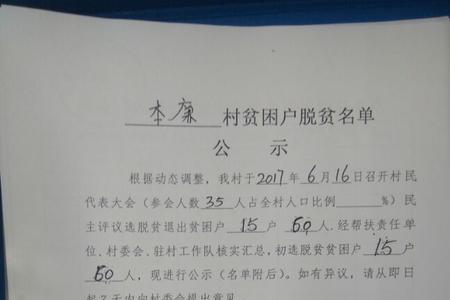 本廉村贫困户脱贫名单
公 示
根据动态调整，我村于2017年6月16日召开村民
代表大会（参会人数35人占全村人口比例______%）民
主评议选脱贫退出贫困户15户60人.经帮扶责任单
位、村委会、驻村工作队核实汇总，初选脱贫贫困户15户
60人，现进行公示（名单附后）。如有异议，请从即日
起7天内向村委会提出意见